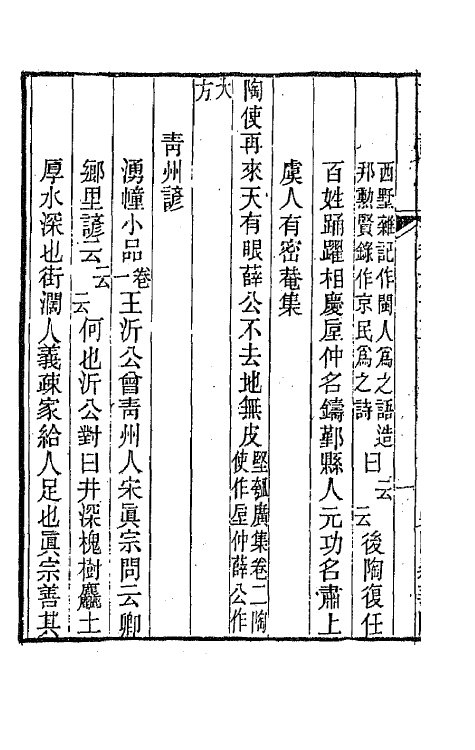 西墅雜記作閩人爲之語造邦勳賢錄作京民爲之詩曰云云後陶復任
百姓踊躍相慶垕仲名鑄鄞縣人元功名肅上
虞人有密菴集
陶使再來天有眼薛公不去地無皮堅瓠廣集卷二陶使作垕仲薛公作
大方
靑州諺
湧幢小品卷一王沂公曾靑州人宋眞宗問云卿
鄉里諺云云云何也沂公對曰井深槐樹麤土
厚水深也街濶人義疎家給人足也眞宗善其